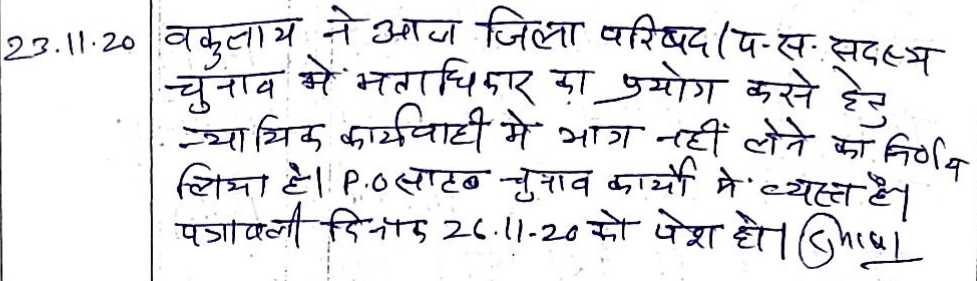 23.11.20 वकुलाय ने आज जिला परिषद/प.स. सदस्य
चुनाव में मताधिकार का प्रयोग करने हेतु
न्यायिक कार्यवाही में भाग नहीं लेने का निर्णय
लिया है। P.O साहब चुनाव कार्यो में व्यस्त है।
पत्रावली दिनांक 26.11.20 को पेश हो।